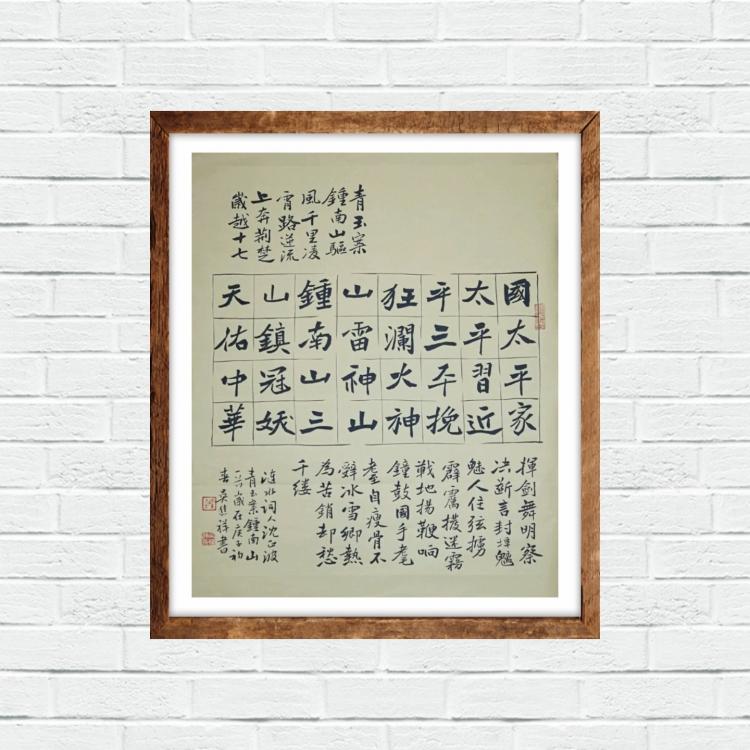 青玉案
鍾南山驅
風千里凌
霄路逆流
上奔荆楚
歲越十七
國太平家
太平習近
平三挽
狂瀾火神
山雷神山
鍾南山三
山鎮冠妖
天佑中華
揮劍舞明察
决斷言封魑
魅人住弦擄
霹靂撥迷霧
戰地揚鞭响
鐘鼓國手耄
耋自瘦骨不
辭冰雪鄉熱
為苦銷却愁
千缕
漣水詞人沈正波
青玉案鍾南山
歲在庚子初
春吳祥書